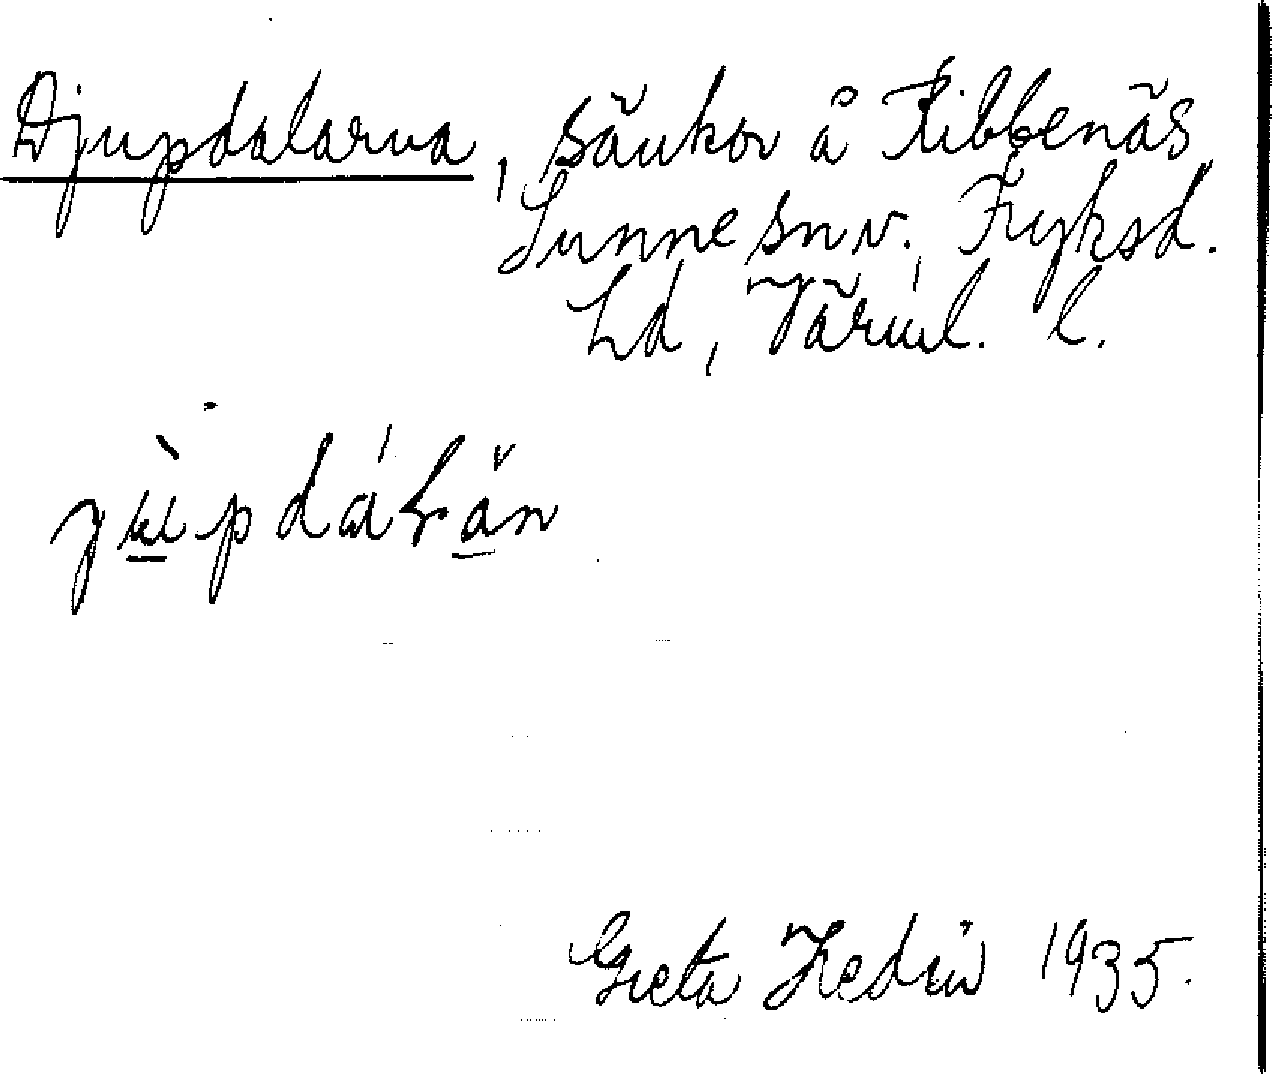 Djupdalarna, sänkor å Ribbenäs
Sunne sn v. Fryksd.
hd, Värml. l.
Greta Hedin 1935.